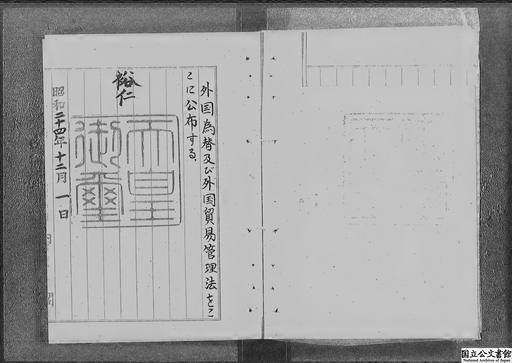 外国為替及び外国貿易管理法をこ
こに公布する。
裕仁
天皇
御璽
昭和二十四年十二月一日
国立公文書館
National Archives of Japan